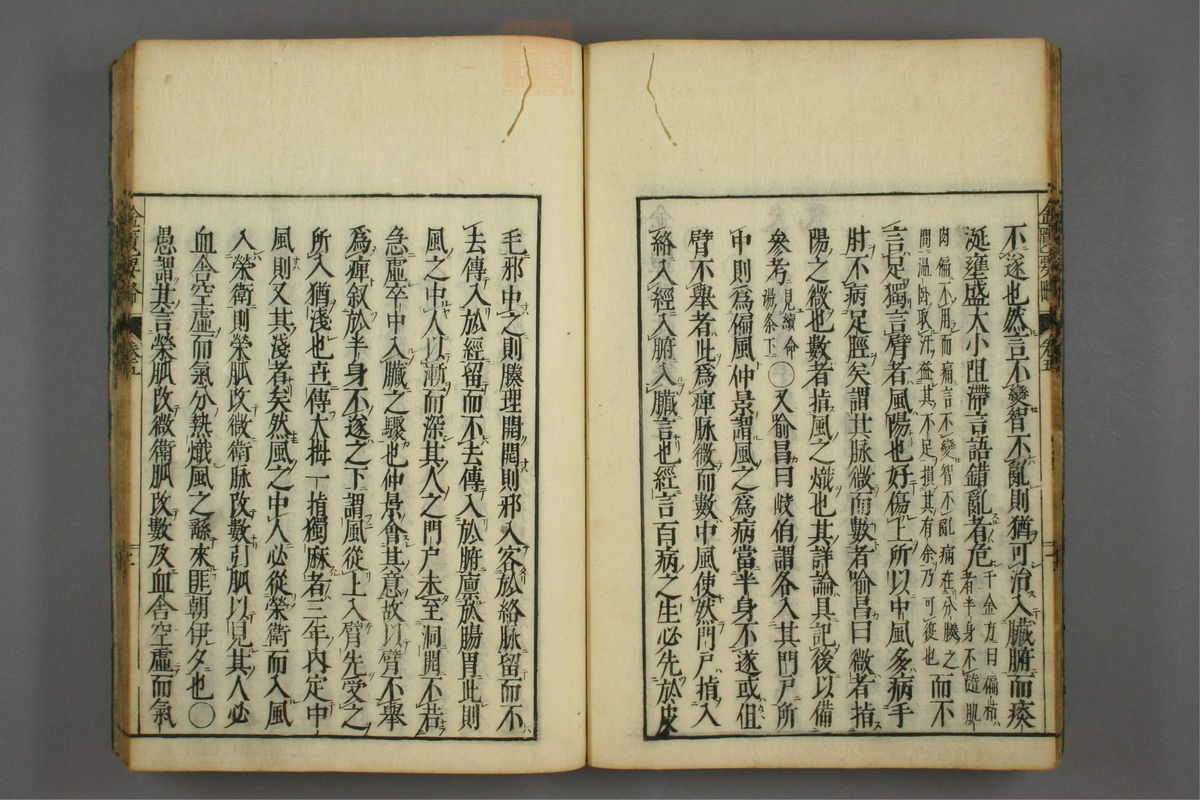 不遂也然言不變智不亂則猶可治入臟腑而痰
涎壅盛大小阻滯言語錯亂者危千金方曰偏枯者半身不隨肌
肉偏不用而痛言不變智不亂病在分腠之間温臥取汗益其不足損其有余乃可復也而不
言足獨言臂者風陽也好傷上所以中風多病手
肘不病足脛矣謂其脉微而數者喻昌曰微者指
陽之微也數者指風之熾也其詳論具記後以備
參考見續命湯条下○又喻昌曰岐伯謂各入其門戸所
中則為偏風仲景謂風之為病當半身不遂或但
臂不舉者此為痺脉微而數中風使然門戸指入
絡入經入腑入臟言也經言百病之生必先於皮
毛邪中之則腠理開開則邪入客於絡脉留而不
去傳入於經留而不去傳入於腑廩於腸胃此則
風之中人以漸而深其人之門戸未至洞開不若
急虚卒中入臟之驟也仲景會其意故以臂不舉
為痺叙於半身不遂之下謂風從上入臂先受之
所入猶淺也世傳大拇一指獨麻者三年内定中
風則又其淺者矣然風之中人必從榮衛而入風
入榮衛則榮脉改微衛脉改數引脉以見其人必
血舍空虚而氣分熱熾風之繇來匪朝伊夕也○
愚謂其言榮脉改微衛脉改數及血舍空虚而氣
金匱要略
卷五